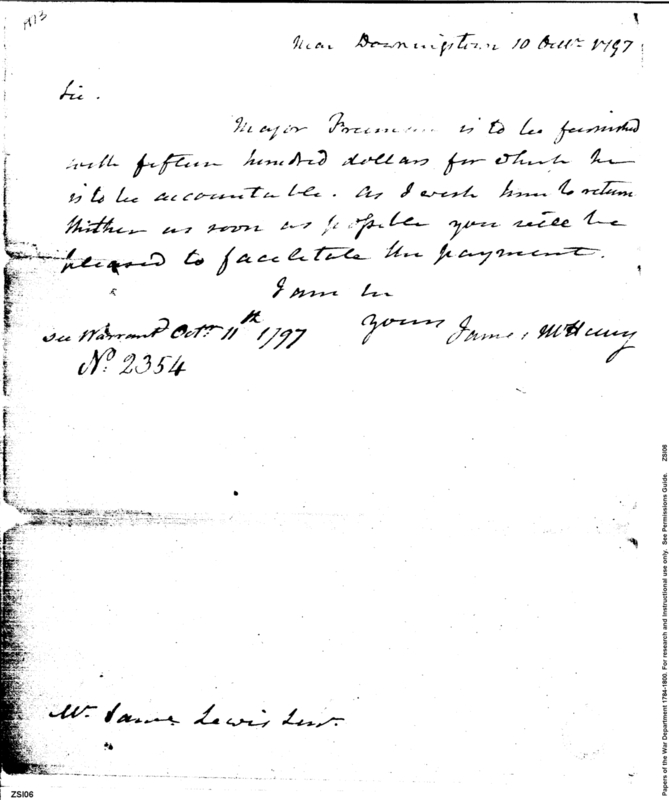 near Downingstown 10 Octr. 1797
Sir.
Major Freeman is to be furnished
with fifteen hundred dollars for which he
is to be accountable. As I wish him to return
thither as soon as possible you will be
pleased to facilitate the payment.
I am Sir
yours James McHenry
See Warrant Octr. 11th 1797
No. 2354
Mr. James Lewis Junr.
ZSI06
Papers of the War Department 1784-1800. For research and instructional use only. See Permissions Guide. ZSI06